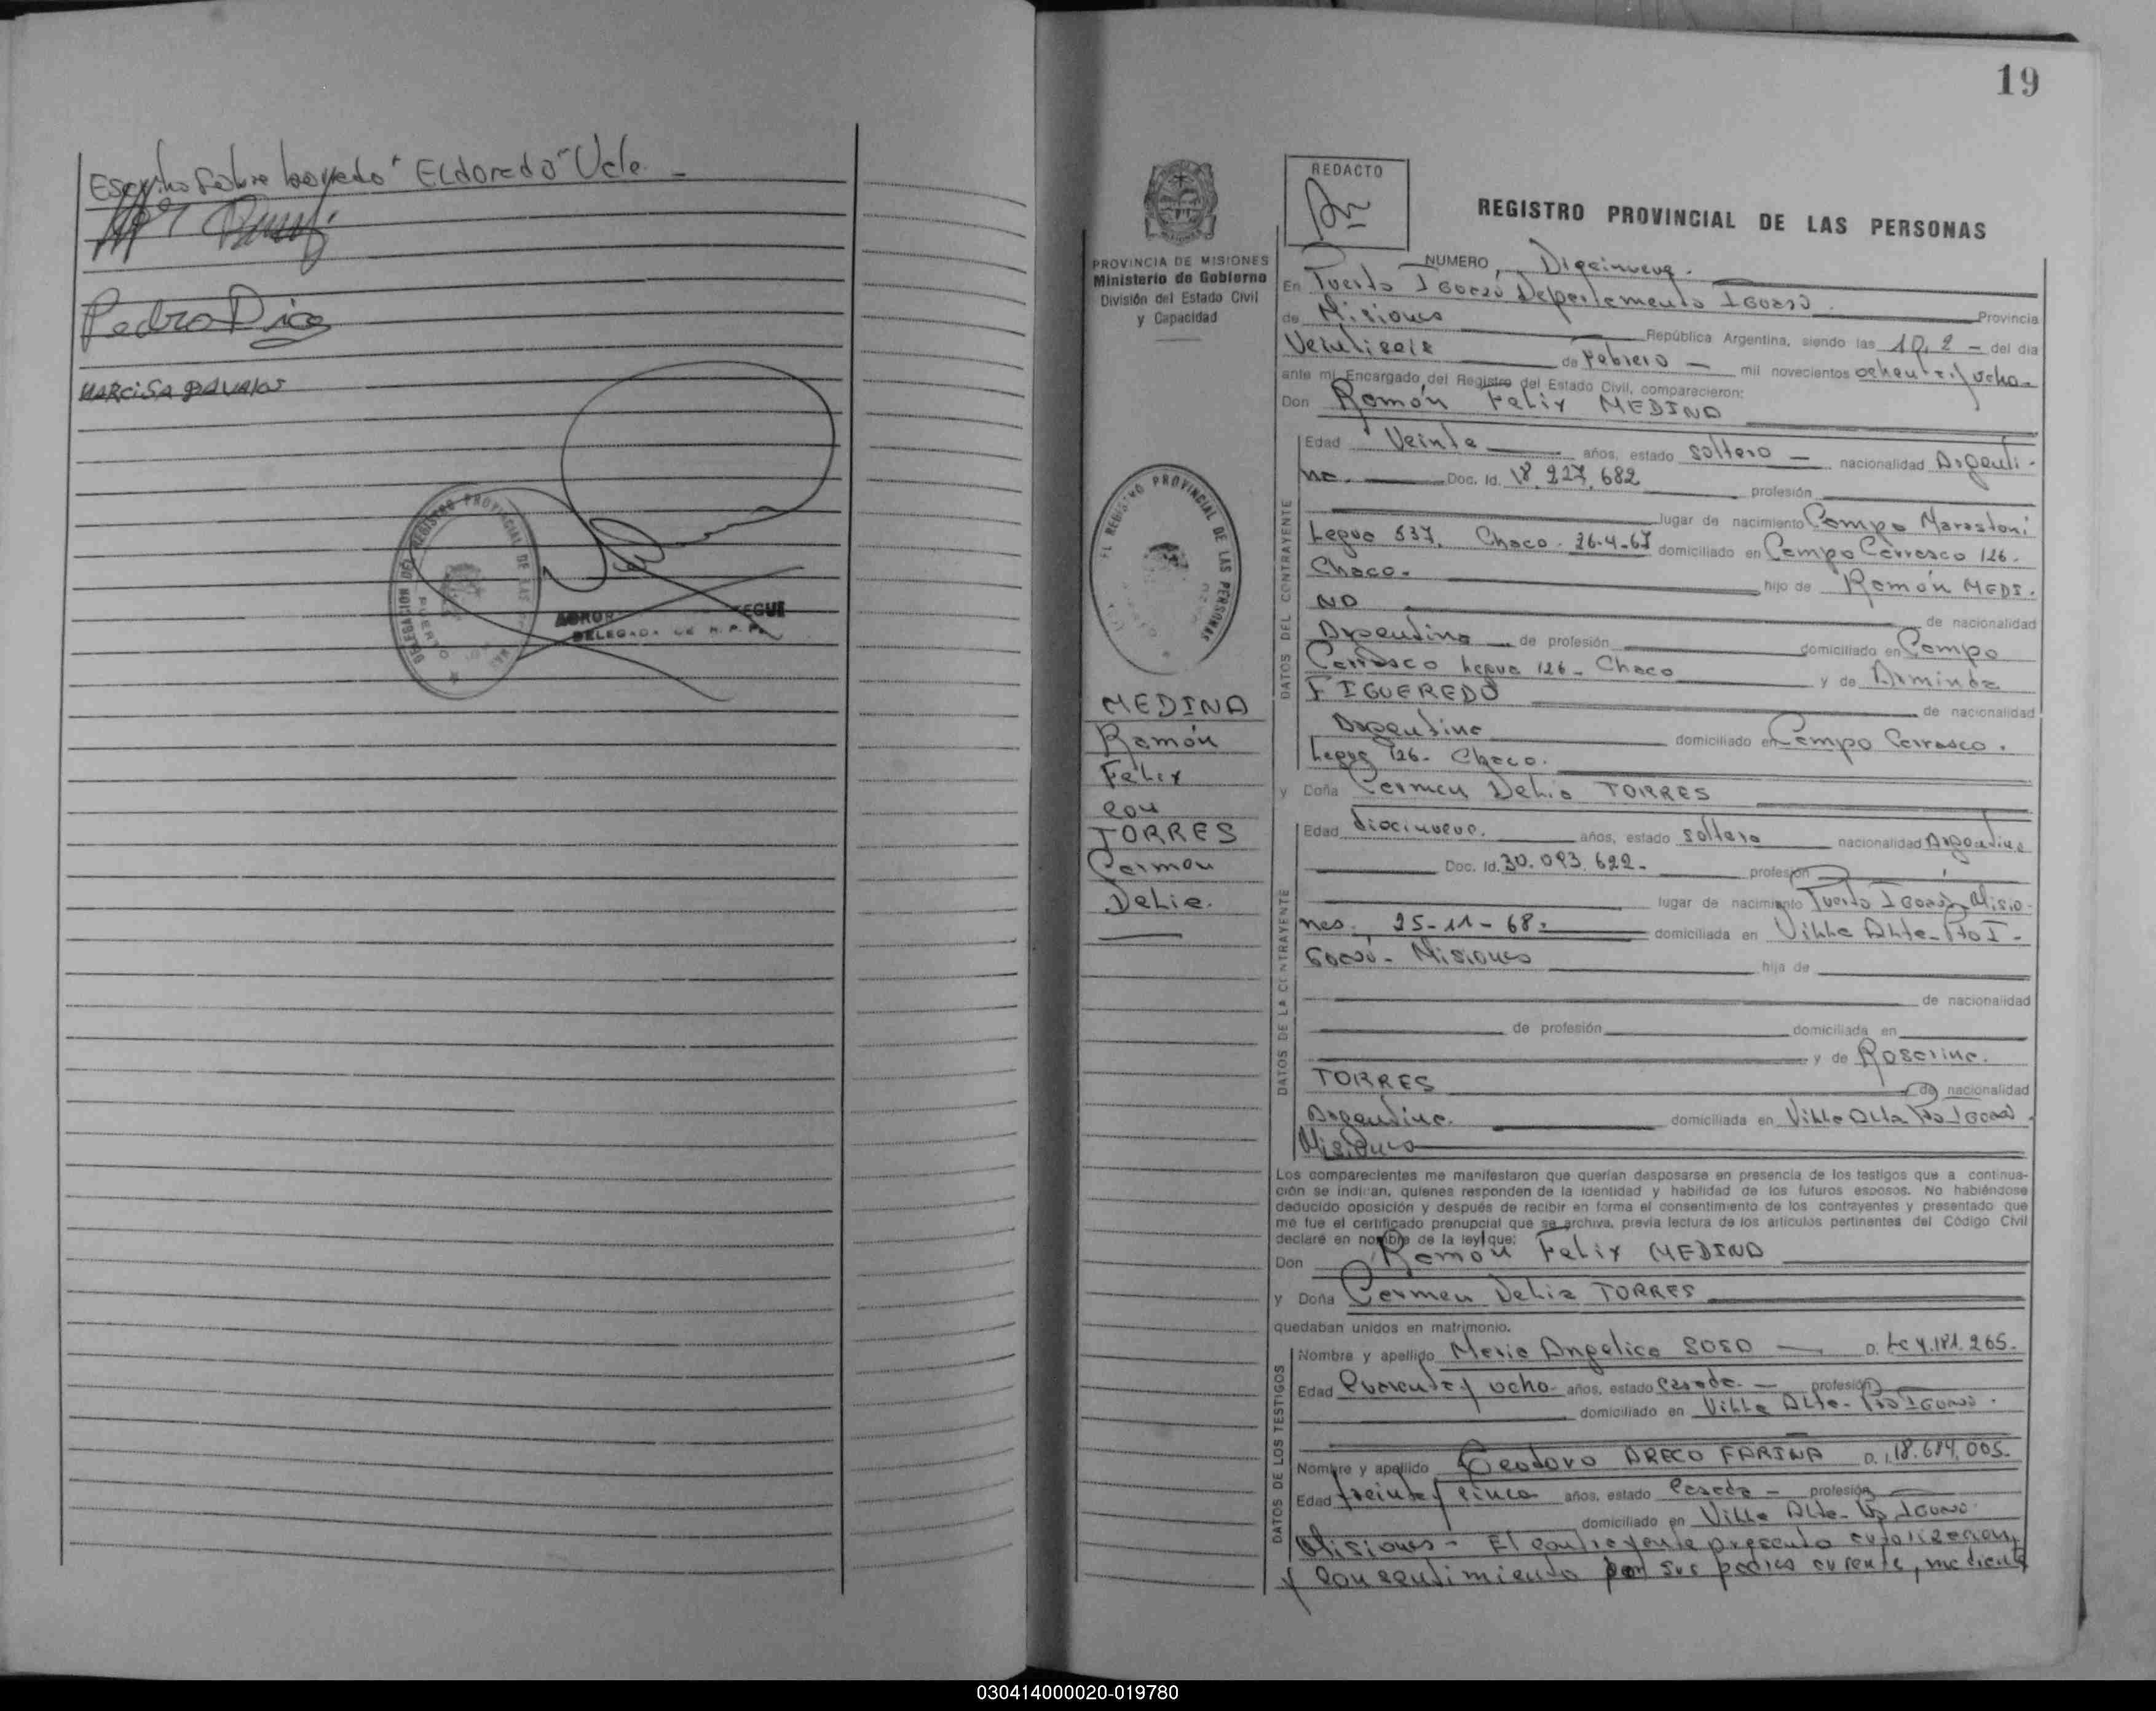 Escrito sobre borrado "ELdorado" Vale. -
Pedro Dias
NARCISA DAVALOS
DELEGACION DEL REGISTRO PROVINCIAL DE LAS PERSONAS
DELEGADA DE R. P. P.
19
REDACTO
REGISTRO PROVINCIAL DE LAS PERSONAS
PROVINCIA DE MISIONES
Ministerio de Gobierno
División del Estado Civil
y Capacidad
NUMERO Diecinueve.
En Puerto Iguazú Departamento Iguazú Provincia
de Misiones República Argentina, siendo las 10,2 - del día
Veintiseis de Febrero - mil novecientos ochenta y ocho-
ante mi, Encargado del Registro del Estado Civil, comparecieron:
Don Ramón Felix MEDINA
DATOS DEL CONTRAYENTE
Edad Veinte años, estado soltero - nacionalidad Argenti-
na. Doc. Id. 18.227.682 profesión
lugar de nacimiento Campo Marastoni
Legua 537. Chaco. 26-4-67 domiciliado en Campo Carrasco 126.
Chaco. hijo de Ramón MEDI-
NA de nacionalidad
Argentina de profesión domiciliado en Campo
Carrasco Legua 126 - Chaco y de Arminda
FIGUEREDO de nacionalidad
Argentina domiciliado en Campo Carrasco.
Legua 126 - Chaco.
y Doña Carmen Delia TORRES
DATOS DE LA CONTRAYENTE
Edad diecinueve. años, estado soltera nacionalidad Argentina
Doc. Id. 30.093.622. profesión
lugar de nacimiento Puerto Iguazú Misio-
nes. 25-11-68. domiciliada en Villa Alta - Pto I-
guazú - Misiones hija de
de nacionalidad
de profesión domiciliada en
y de Rosarina.
TORRES de nacionalidad
Argentina. domiciliada en Villa Alta Pto Iguazú
Misiones
MEDINA
Ramón
Felix
con
TORRES
Carmen
Delia.
Los comparecientes me manifestaron que querían desposarse en presencia de los testigos que a continua-
ción se indican, quienes responden de la identidad y habilidad de los futuros esposos. No habiéndose
deducido oposición y después de recibir en forma el consentimiento de los contrayentes y presentado que
me fue el certificado prenupcial que se archiva, previa lectura de los artículos pertinentes del Código Civil
declaré en nombre de la ley que:
Don Ramón Felix MEDINA
y Doña Carmen Delia TORRES
quedaban unidos en matrimonio.
DATOS DE LOS TESTIGOS
Nombre y apellido Maria Angelica SOSA D. LC 4.181.265.
Edad Cuarenta y ocho años, estado Casada. - profesión
domiciliado en Villa Alta - Pto Iguazú.
Nombre y apellido Teodoro ARECO FARINA D. 18.684.005.
Edad treinta y cinco años, estado Casado - profesión
domiciliado en Villa Alta - Pto Iguazú
Misiones - El contrayente presenta autorizacion
y consentimiento por sus padres, mediante
030414000020-019780